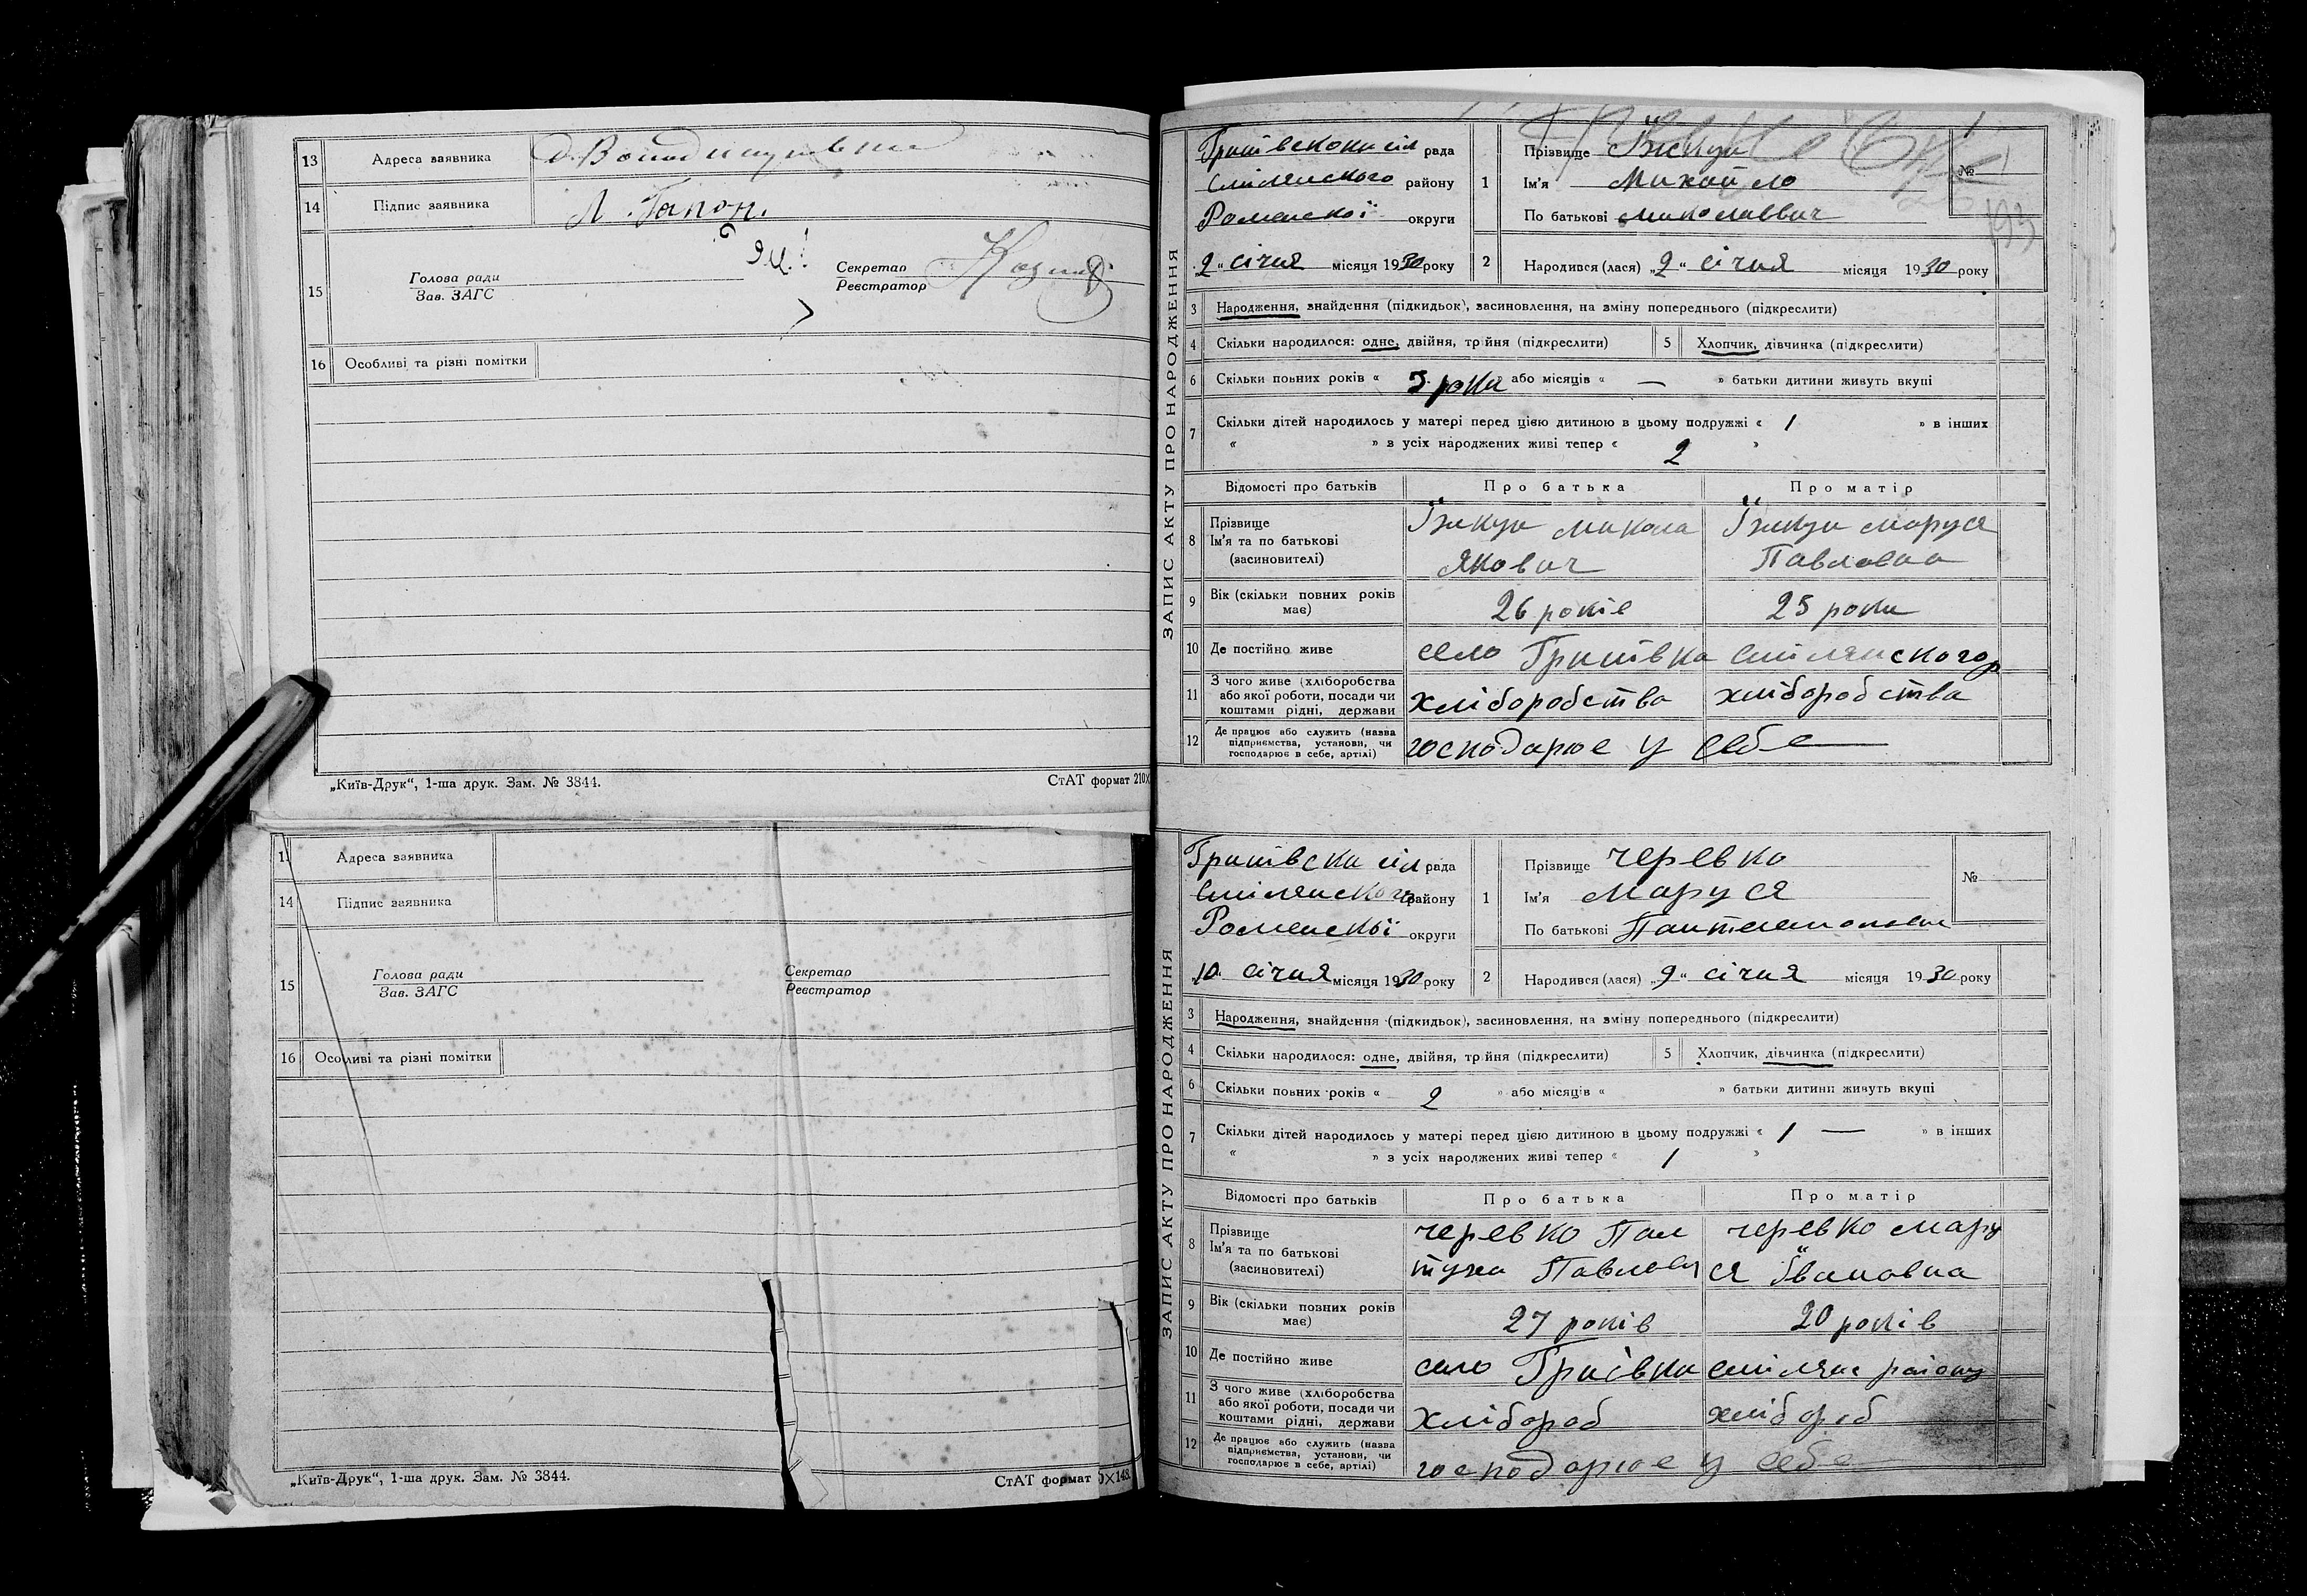 13 Адреса заявника
14 Підпис заявника Л. Гапон.
15 Голова ради
Зав. ЗАГС
Секретар
Реєстратор
16 Особливі та різні помітки
„Київ-Друк“, 1-ша друк. Зам. № 3844.
СтАТ формат 210X
Адреса заявника
14 Підпис заявника
15 Голова ради
Зав. ЗАГС
Секретар
Реєстратор
16 Особливі та різні помітки
„Київ-Друк“, 1-ша друк. Зам. № 3844.
СтАТ формат 0X148.
ЗАПИС АКТУ ПРО НАРОДЖЕННЯ
рада
Смілянского району
Роменскої округи
2 “ січня місяця 1930 року
1 Прізвище
Ім'я Михайло
По батькові Миколаввич
№
2 Народився (лася) „2“ січня місяця 1930 року
3 Народження, знайдення (підкидьок), засиновлення, на зміну попереднього (підкреслити)
4 Скільки народилося: одне, двійня, трійня (підкреслити)
5 Хлопчик, дівчинка (підкреслити)
6 Скільки повних років « 5 роки » або місяців « — » батьки дитини живуть вкупі
7 Скільки дітей народилось у матері перед цією дитиною в цьому подружжі « 1 » в інших
« » з усіх народжених живі тепер « 2 »
Відомості про батьків Про батька Про матір
8 Прізвище
Ім'я та по батькові
(засиновителі)
Микола
Якович
Маруся
Павловна
9 Вік (скільки повних років має) 26 років 25 роки
10 Де постійно живе село Грипівка Смілянского р
11 З чого живе (хліборобства
або якої роботи, посади чи
коштами рідні, держави
хліборобства хліборобства
12 Де працює або служить (назва
підприємства, установи, чи
господарює в себе, артілі)
господарює у себе
ЗАПИС АКТУ ПРО НАРОДЖЕННЯ
сіл рада
Смілянского району
Роменскої округи
10. січня місяця 1930 року
1 Прізвище Черевко
Ім'я Маруся
По батькові
№
2 Народився (лася) „9“ січня місяця 1930 року
3 Народження, знайдення (підкидьок), засиновлення, на зміну попереднього (підкреслити)
4 Скільки народилося: одне, двійня, трійня (підкреслити)
5 Хлопчик, дівчинка (підкреслити)
6 Скільки повних років « 2 » або місяців « » батьки дитини живуть вкупі
7 Скільки дітей народилось у матері перед цією дитиною в цьому подружжі « 1 — » в інших
« » з усіх народжених живі тепер « 1 »
Відомості про батьків Про батька Про матір
8 Прізвище
Ім'я та по батькові
(засиновителі)
Черевко
Черевко Мару
ся Івановна
9 Вік (скільки повних років має) 27 років 20 років
10 Де постійно живе село Гриівка Смілянс району
11 З чого живе (хліборобства
або якої роботи, посади чи
коштами рідні, держави
хлібороб хлібороб
12 Де працює або служить (назва
підприємства, установи, чи
господарює в себе, артілі)
господарює у себе